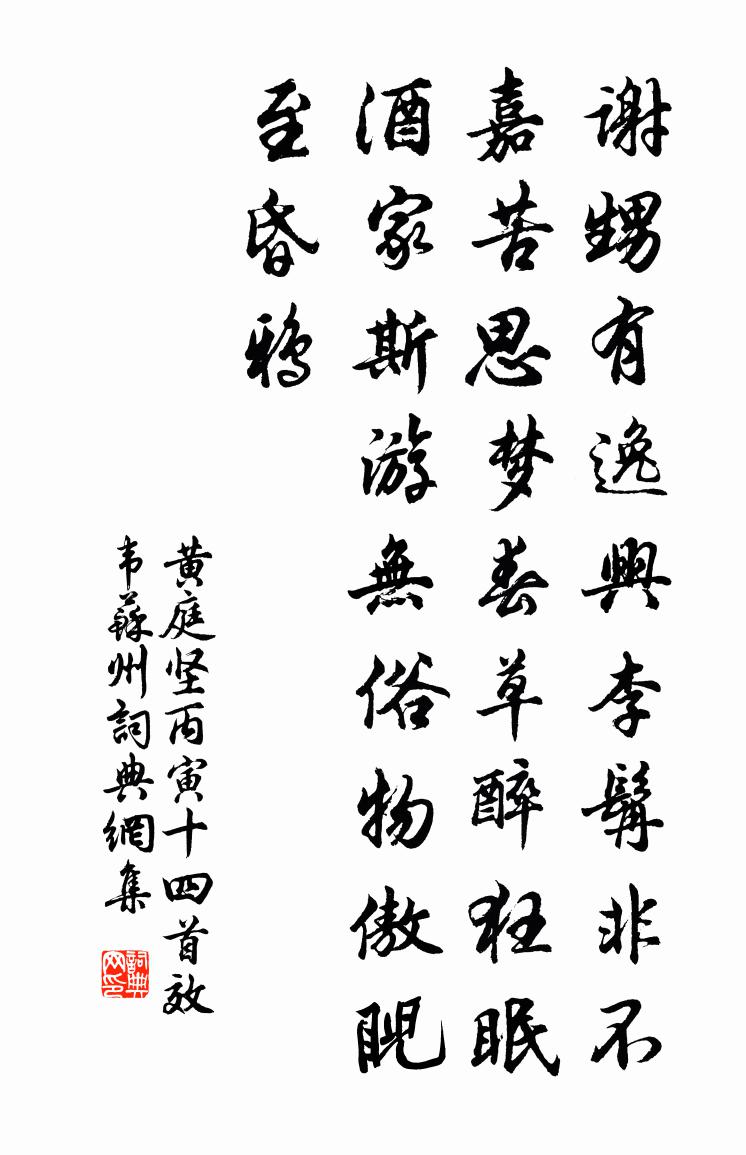 谢甥有逸興李髯非不
嘉苦思梦春草醉狂眠
酒家斯游無俗物傲睨
至昏鴉
黄庭坚丙寅十四首效
韦蘇州詞典網集
詞典网印